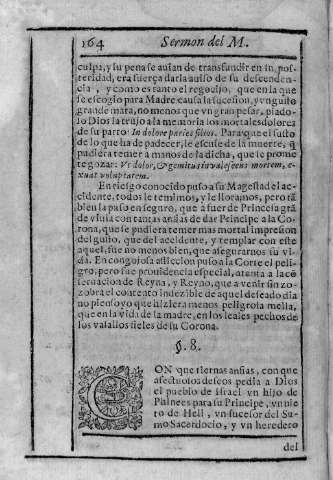 164 Sermon del M.
culpa, y su pena se auian de transfundir en su pos-
teridad, era fuerça darla auiso de su descenden-
cia, y como es tanto el regozijo, que en la que
se escogio para Madre causa la sucesion, y vn gusto
grande mata, no menos que vn gran pesar, piado-
so Dios la truxo a la memoria los mortales dolores
de su parto: In dolore paries filios. Para que el susto
de lo que ha de padecer, le escuse de la muerte, q̃
pudiera temer a manos de la dicha, que se prome
te gozar: Vt dolor, & gemitus
mortem, e-
xuat voluptatem.
En riesgo conocido puso a su Magestad el ac-
cidente, todos le temimos, y le lloramos, pero tã
bien la puso en seguro, que a fuer de Princesa grã
de viuia con tantas ansias de dar Principe a la Co-
rona, que se pudiera temer mas mortal impresion
del gusto, que del accidente, y templar con este
aquel, fue no menos bien, que asegurarnos su vi-
da. En congojosa afliccion puso a la Corte el peli-
gro, pero fue prouidencia especial, atenta a la cõ
seruacion de Reyna, y Reyno, que a venir sin zo-
zobra el contento indezible de aquel deseado dia
no pienso yo que hiziera menos peligrosa mella,
que en la vida de la madre, en los leales pechos de
los vasallos fieles de su Corona.
§. 8.
CON que tiernas ansias, con que
afectuosos deseos pedia a Dios
el pueblo de Israel vn hijo de
Phinees para su Principe, vn nie
to de Heli, vn sucesor del Su-
mo Sacerdocio, y vn heredero
del